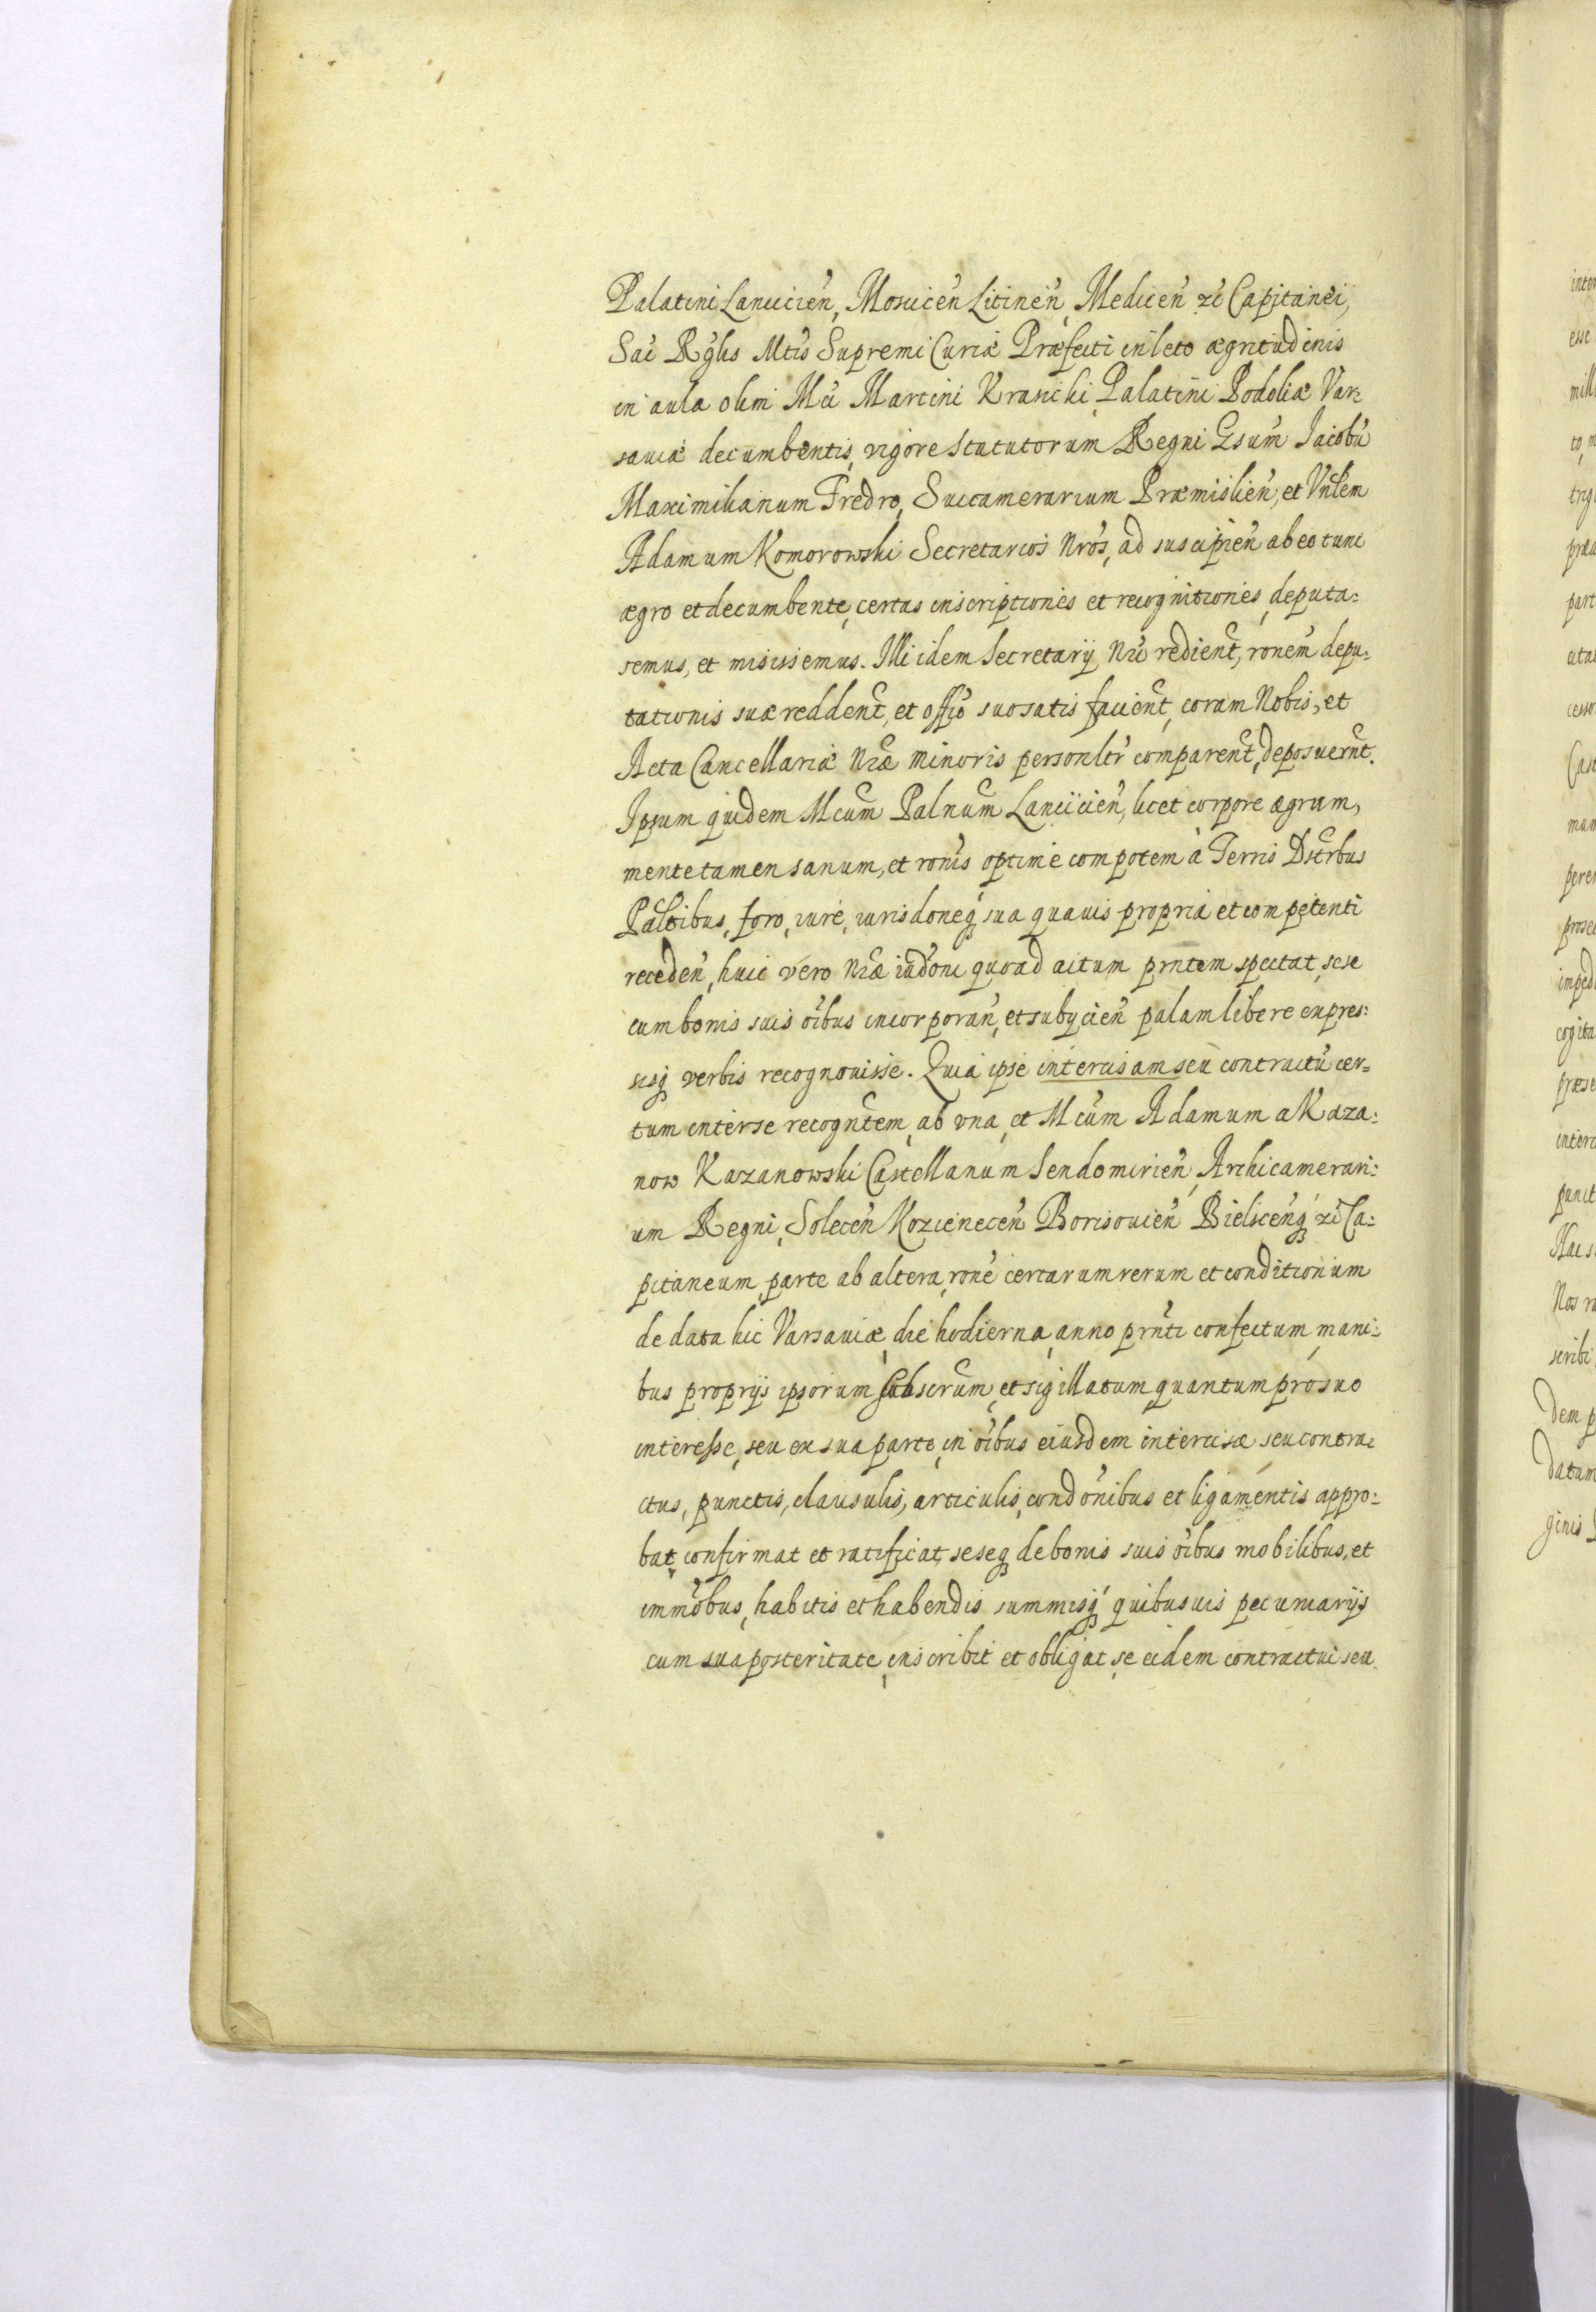 Palatini Lanciciẽn, Moscicẽn Litinẽn, Medicẽn zc̃ Capitanei,
Sac̃ Rg̃lis Mtis̃ Supremi Curiæ Præfecti in lecto ægritudinis
in aula olim Mci Martini Krasicki Palatini Podoliæ Var-
saviæ decumbentis, vigore Statutorum Regni Gsum̃ Jacobũ
Maximilianum Fredro, Succamerarium Præmislieñ, et Vrl̃em
Adamum Komorowski Secretarios Nrõs, ad suscipieñ ab eo tunc
ægro et decumbente, certas inscriptiones et recognitiones, deputa-
semus, et misissemus. Illi idem Secretarÿ Nrĩ redieñt, roñem depu-
tationis suæ reddeñt, et offõ suo satis facieñt, coram Nobis, et
Acta Cancellariæ Nræ̃ Minoris personltr̃ compareñt, deposuerñt.
Ipsum quidem Mcum̃ Palnum̃ Lancicieñ, licet corpore ægrum,
mente tamen sanum, et roñis optime compotem à Terris Dstrb̃us
Paltĩbus, foro, iure, iurisdoneq̃ sua quavis propria et competenti
recedeñ, huic vero Nræ̃ iudõni quo ad actum prñtem spectat, sese
cum bonis suis oĩbus incorporañ, et subÿcieñ palam libere expres-
sisq̃ verbis recognovisse. Quia ipse intercisam seu contractũ cer-
tum inter se recogñtem, ab una, et Mcum̃ Adamum a Kaza-
now Kazanowski Castellanum Sendomirieñ, Archicamerari-
um Regni, Soleceñ Kozieneceñ Borisovieñ Bielsceñq̃ zc̃ Ca-
pitaneum, parte ab altera, roñe certarum rerum et conditionum
de data hic Varsaviæ, die hodierna, anno prñti confectum, mani-
bus proprÿs ipsorum subscrum̃, et sigillatum, quantum pro suo
interesse, seu ex sua parte, in oĩbus eiusdem intercisæ seu contra-
ctus, punctis, clausulis, articulis, condoñibus et ligamentis appro-
bat, confirmat et ratificat, seseq̃ de bonis suis oĩbus mobilibus, et
immõbus, habitis et habendis summisq̃ quibusvis pecuniarÿs
cum sua posteritate, inscribit et obligat, se eidem contractui seu